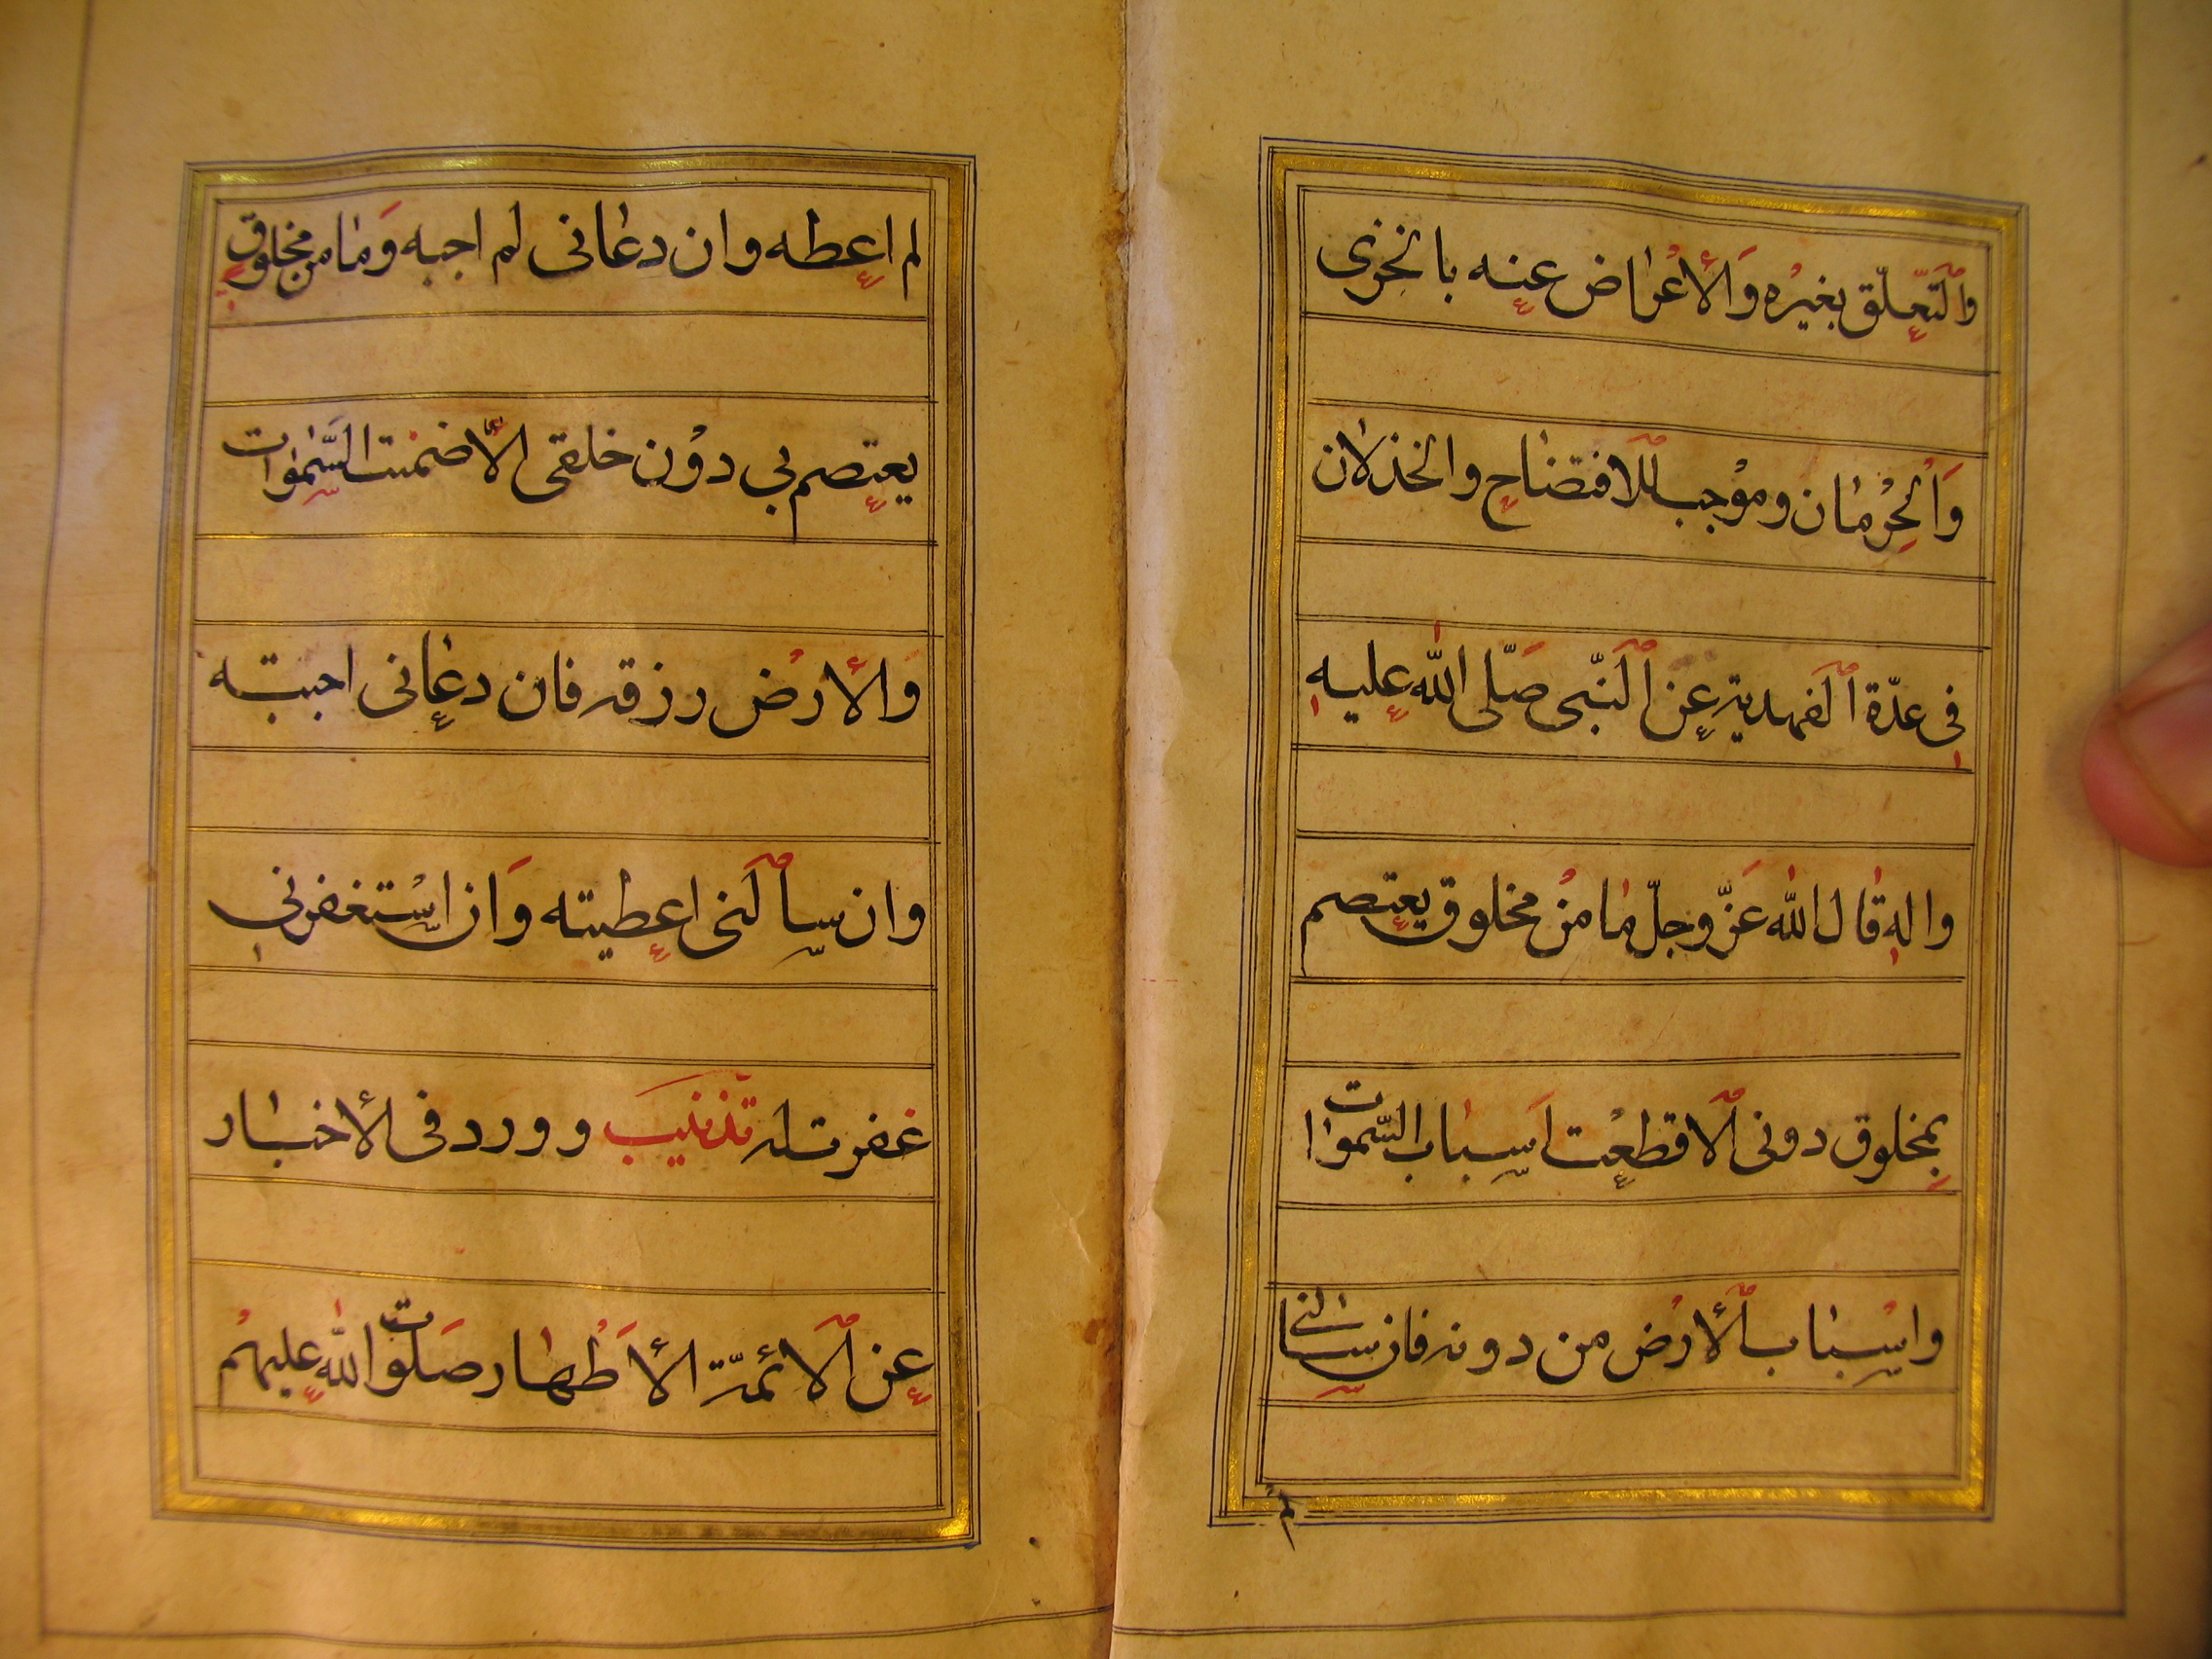 والتّعلّق بغيره والأعراض عنه بالخزى
والحرمان وموجب للافتضاح والخذلان
فى عدّة الفهدية عن النّبى صلّى الله عليه
واله قال الله عزّ وجلّ ما من مخلوق يعتصم
بمخلوق دونى الّا قطعت اسباب السّموات
واسباب الأرض من دونه فان سالنى
لم
لم اعطه وان دعانى لم اجبه وما من مخلوق
يعتصم بي دون خلقى الّا ضمنت السّموات
والأرض رزقه فان دعانى اجبته
وان سألنى اعطيته وان استغفرنى
غفرت له تذنيب وورد فى الأخبار
عن الأئمّة الأطهار صلوات الله عليهم